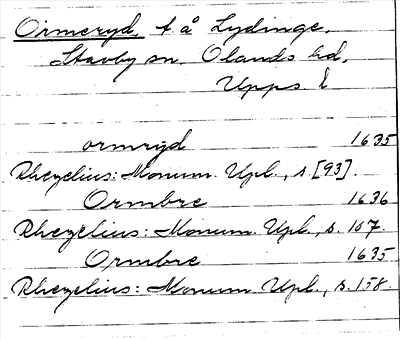 Ormeryd, t. å Lydinge,
Stavby sn. Olands hd,
Upps. l
ormryd 1635
Rhezelius: Monum. Upl., s. [93].
Ormbre 1636
Rhezelius: Monum. Upl., s. 107.
Ormbre 1635
Rhezelius: Monum. Upl., s. 158.